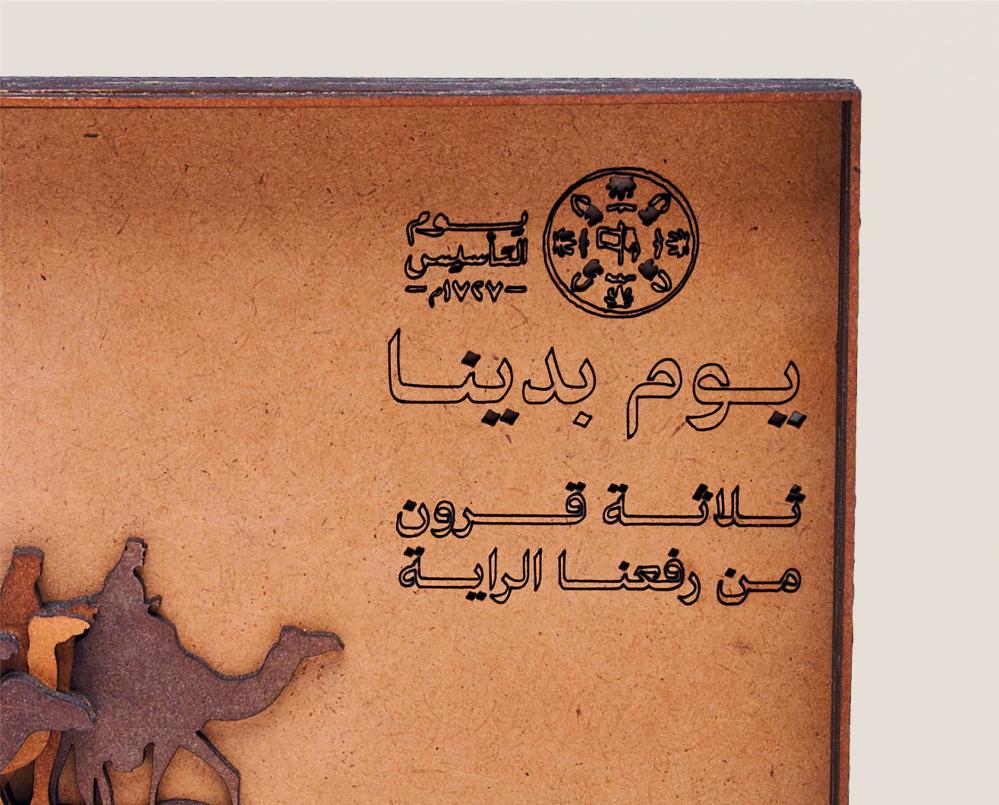 يوم
التأسيس
١٧٢٧م
يوم بدينا
ثلاثة قرون
من رفعنا الراية